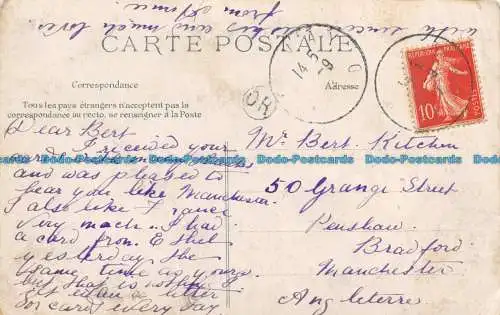 with
and much love
from
CARTE POSTALE
Correspondance
Adresse
Tous les pays étrangers n'acceptent pas la
correspondance au recto, se renseigner à la Poste
OR
14 5
RÉPUBLIQUE FRANÇAISE
10c
POSTES
Dear Bert
I received your
card
and was pleased to
hear you like Manchester
I also like France
Very much. I had
a card from Ethel
yesterday she
same time as yours
but that is nothing
letter
or card every day
Mr Bert Kitchen
50 Grange Street
Bradford
Manchester
Angleterre
Dodo-Postcards Dodo-Postcards Dodo-Postcards Dodo-Postcards Dodo-Postcards